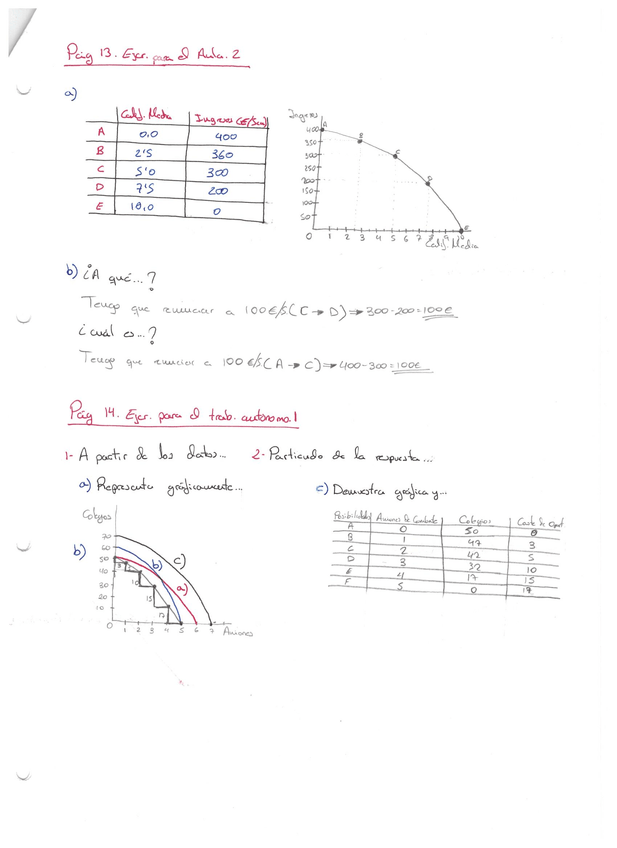 Pág 13. Ejer. para el Aula. 2
a)
Calif. Media Ingresos (€/sem)
A 0,0 400
B 2'5 360
C 5'0 300
D 7'5 200
E 10,0 0
Ingresos
400 A
350 B
300 C
250
200 D
150
100
50
E
0 1 2 3 4 5 6 7 8 9 10
Calif. Media
b) ¿A qué...?
Tengo que renunciar a 100€/S (C → D) ⇒ 300-200=100€
¿cuál es...?
Tengo que renunciar a 100 €/S (A → C) ⇒ 400-300=100€
Pág 14. Ejer. para el trab. autónomo. 1
1- A partir de los datos... 2- Partiendo de la respuesta...
a) Representa gráficamente... c) Demuestra gráfica y...
Colegios
b)
70
60
50
40
30
20
10
0 1 2 3 4 5 6 7 Aviones
c)
b)
a)
3
10
15
17
Posibilidades Aviones de Combate Colegios Coste de Oport
A 0 50 0
B 1 47 3
C 2 42 5
D 3 32 10
E 4 17 15
F 5 0 17